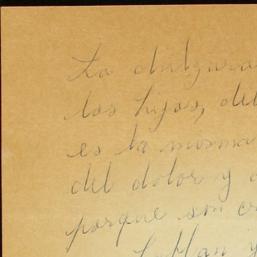 La dulzura
los hijos, del
es la misma
del dolor y
porque son